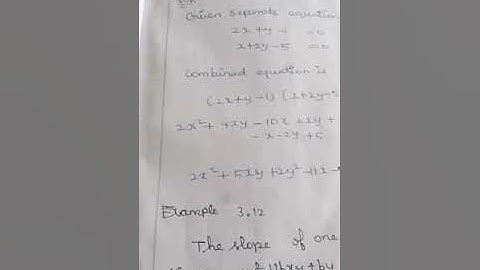 Given separate equation
2x+y-1 =0
x+2y-5 =0
Combined equation is
(2x+y-1) (x+2y-5
2x²+ 4xy - 10x + xy +
- x-2y+5
2x²+5xy+2y²-11x-
Example 3.12
The slope of one
2 +2hxy+by